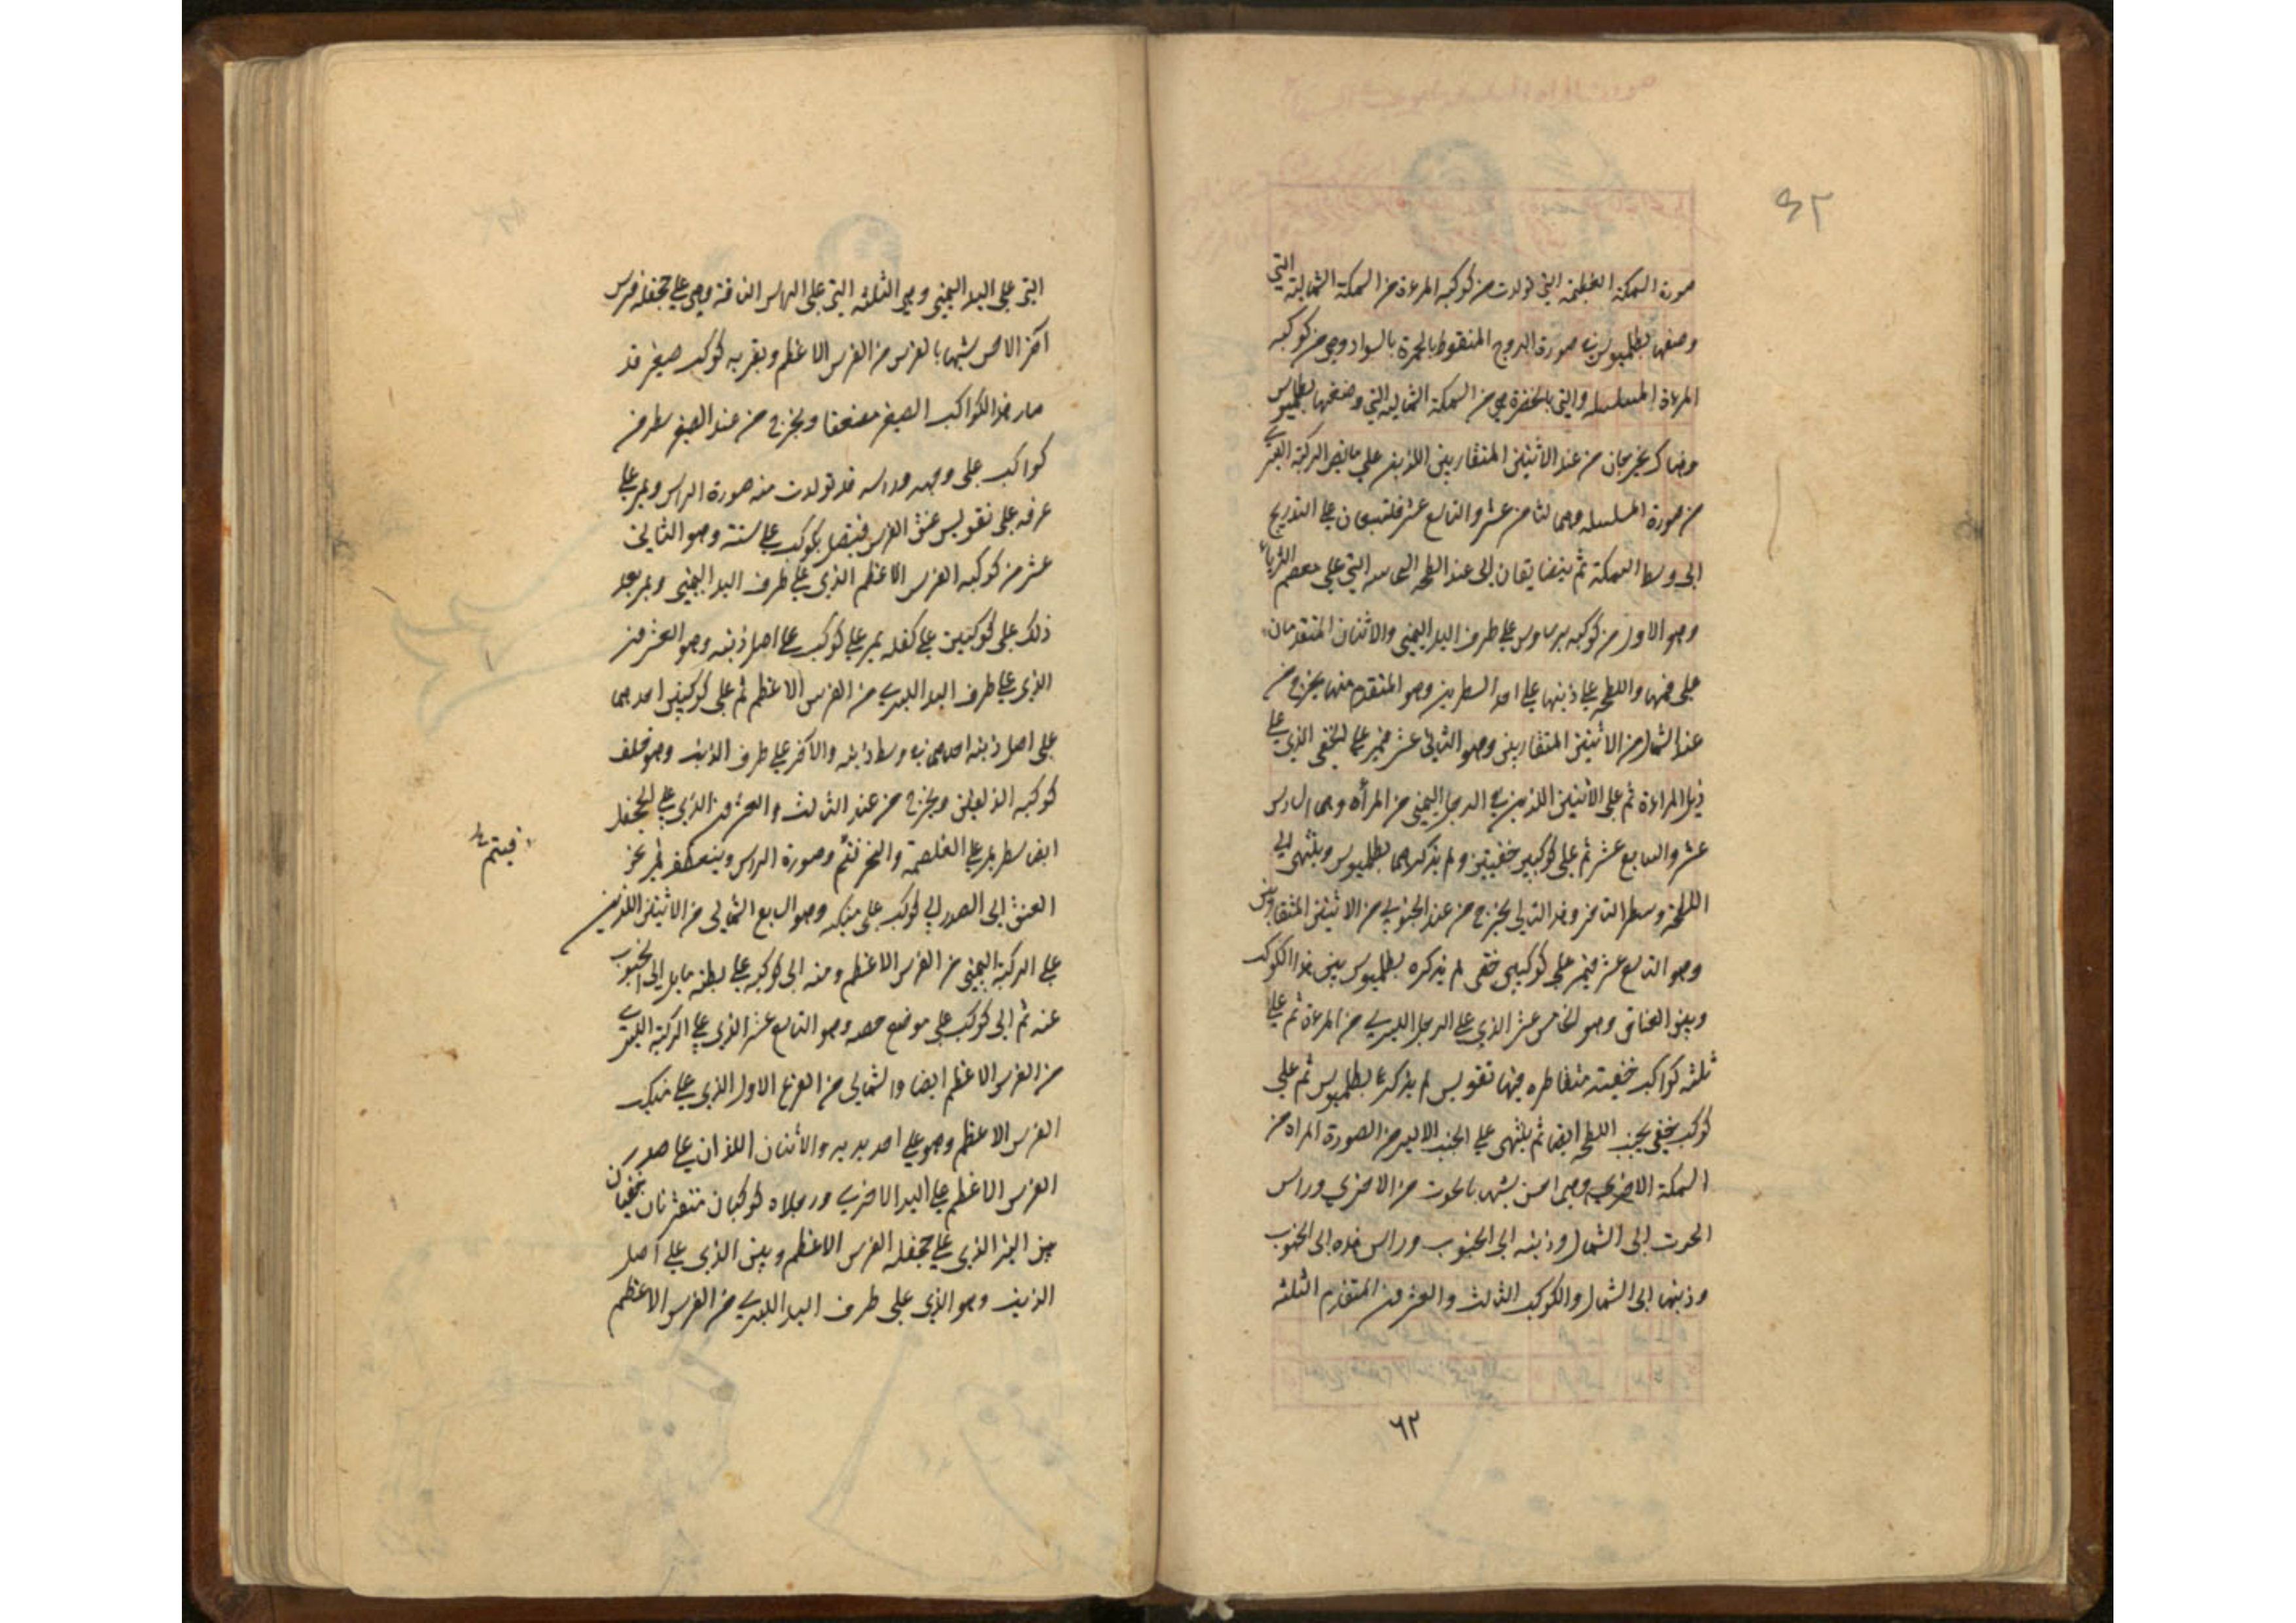 ٦٢
صورة السمكة العظيمة التي تولدت من كوكبه المرءة من السمكة الشمالية التي
وصفها بطلميوس في صورة البروج المنقوط بالحمرة بالسواد وهي من كوكبه
المرءة المسلسله والتي بالخضرة هي من السمكة الشمالية التي وصفها بطلميوس
وهناك يخرجان من عند الاثنين المتقاربين اللذين على مابض الركبة اليسرى
من صورة المسلسله وهما الثامن عشر والتاسع عشر فلتبعان على التدريج
الى وسط السمكة ثم يتضايقان الى عند اللطخة السحابية التي على معصم الثريا
وهو الاول من كوكبه برساوس على طرف اليد اليمنى والاثنان المتقدمان
على فمها واللطخة على ذنبها على احد السطرين وهو المتقدم منها يخرج من
عند الشمال من الاثنين المتقاربين وهو الثاني عشر فيمر على الخفى الذي على
ذيل المراءة ثم على الاثنين اللذين في الرجل اليمنى من المرأه وهما السادس
عشر والسابع عشر ثم على كوكبين خفيين ولم يذكرهما بطلميوس وينتهى الى
اللطخة وسطر الثاني وهذا التالي يخرج من عند الجنوبي من الاثنين المتقاربين
وهو التاسع عشر فيمر على كوكبين خفى لم يذكره بطلميوس بين هذا الكوكب
وبين العناق وهو الخامس عشر الذي على الرجل اليسرى من المرءة ثم على
ثلثه كواكب خفية متقاطره فيها تقويس لم يذكرها بطلميوس ثم على
كوكب خفي بجنب اللطخه ايضا ثم ينتهى على الجنب الايسر من الصورة المراه من
السمكة الاخرى وهي احسن شبها بالحوت من الاخرى وراس
الحوت الى الشمال وذنبه الى الجنوب وراس هذه الى الجنوب
وذنبها الى الشمال والكوكب الثالث والعشرون المتقدم الثلثه
٦٢
التي على اليد اليمنى وهي الثلثه التي على الراس الناقة وهي على جحفلة فرس
آخر الاحسن شبها بالفرس من الفرس الاعظم وبقربه كوكب صغير قد
صار هذا الكواكب الصغير مضعفا ويخرج من عند الصغير سطر من
كواكب على وجهه وراسه قد تولدت منه صورة الراس ويمر على
عرفه على تقويس عنق الفرس فيتصل بكوكب على سنته وهو الثاني
عشر من كوكبه الفرس الاعظم الذي على طرف اليد اليمنى ويمر بعد
ذلك على كوكبين على كفله يمر على كوكب على اصل ذنبه وهو العشرون
الذي على طرف اليد اليسرى من الفرس الاعظم ثم على كوكبين احدهما
على اصل ذنبه احدهما في وسط ذنبه والاخر على طرف الذنب وهو خلف
كوكبه الدلفين ويخرج من عند الثالث والعشرون الذي على الجحفل
ايضا سطر يمر على الغلصمة والنحر فتتم وصورة الراس وينعطف فيمر عن
فيتم
العنق الى الصدر الى كوكب على منكبه وهو الرابع الشمالي من الاثنين اللذين
على الركبة اليمنى من الفرس الاعظم ومنه الى كوكبه على بطنه مايل الى الجنوب
عنه ثم الى كوكب على موضع خصه وهو التاسع عشر الذي على الركبة اليسرى
من الفرس الاعظم ايضا والشمالي من الفرع الاول الذي على منكب
الفرس الاعظم وهو على احد يديه والاثنان اللذان على صدر
الفرس الاعظم على اليد الاخرى ورجلاه كوكبان متقثران خفيان
بين النير الذي على جحفله الفرس الاعظم وبين الذي على اصل
الذنب وهو الذي على طرف اليد اليسرى من الفرس الاعظم